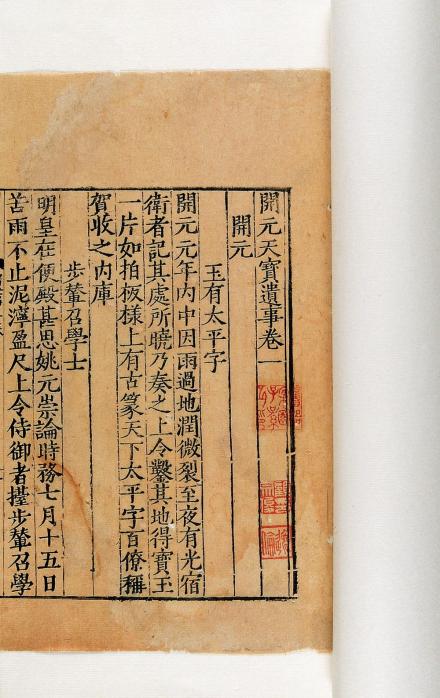 開元天寶遺事卷一
開元
玉有太平字
開元元年内中因雨過地潤微裂至夜有光宿
衛者記其處所曉乃奏之上令鑿其地得寶玉
一片如拍板樣上有古篆天下太平字百僚稱
賀收之内庫
步輦召學士
明皇在便殿甚思姚元崇論時務七月十五日
苦雨不止泥濘盈尺上令侍御者擡步輦召學